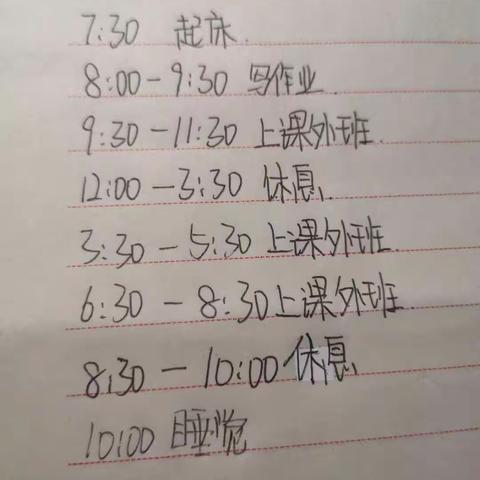 7:30 起床.
8:00-9:30 写作业.
9:30-11:30 上课外班.
12:00-3:30 休息.
3:30-5:30 上课外班.
6:30-8:30 上课外班.
8:30-10:00 休息.
10:00 睡觉